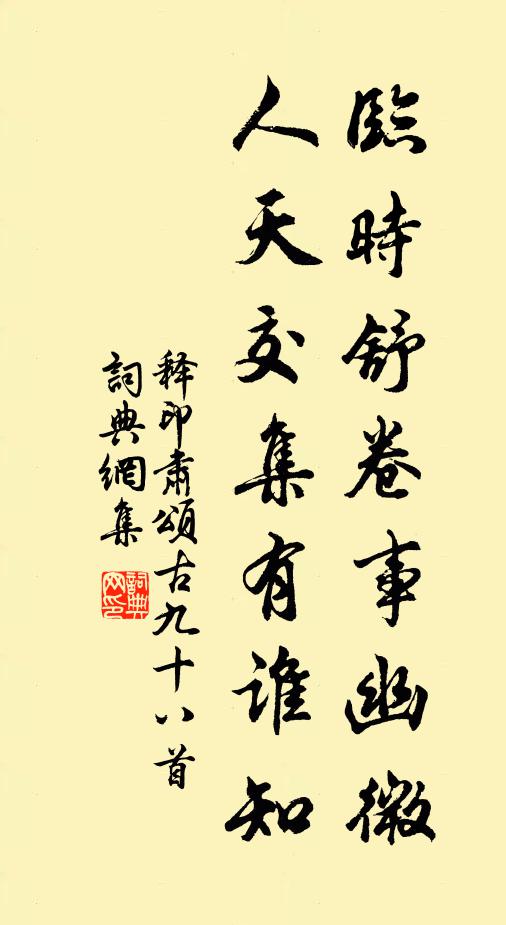 臨時舒卷事幽微
人天交集有誰知
释印肅頌古九十八首
詞典網集
詞典网印